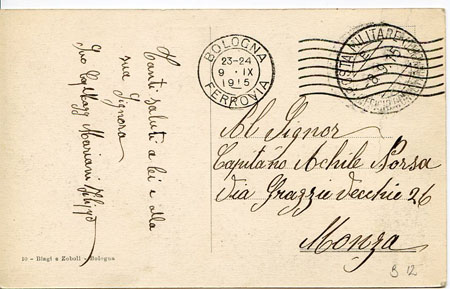 BOLOGNA
23-24
9 · IX
1915
FERROVIA
POSTA MILITARE
8.9.15
Tanti saluti a lei e alla
sua Signora
Mariani
Al Signor
Capitano Achile Norsa
Via Grazzie Vecchie 26
Monza
10 - Biagi e Zoboli - Bologna
B 12